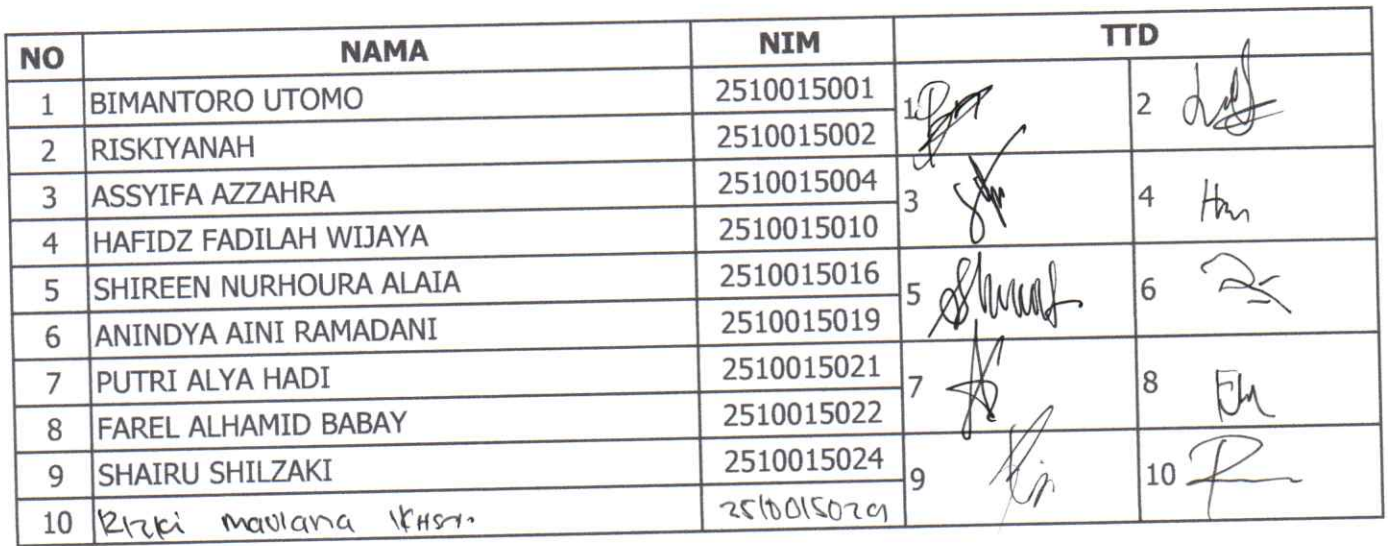 NO NAMA NIM TTD
1 BIMANTORO UTOMO 2510015001 1 2
2 RISKIYANAH 2510015002
3 ASSYIFA AZZAHRA 2510015004 3 4
4 HAFIDZ FADILAH WIJAYA 2510015010
5 SHIREEN NURHOURA ALAIA 2510015016 5 6
6 ANINDYA AINI RAMADANI 2510015019
7 PUTRI ALYA HADI 2510015021 7 8
8 FAREL ALHAMID BABAY 2510015022
9 SHAIRU SHILZAKI 2510015024 9 10
10 Rizki maulana 2510015029